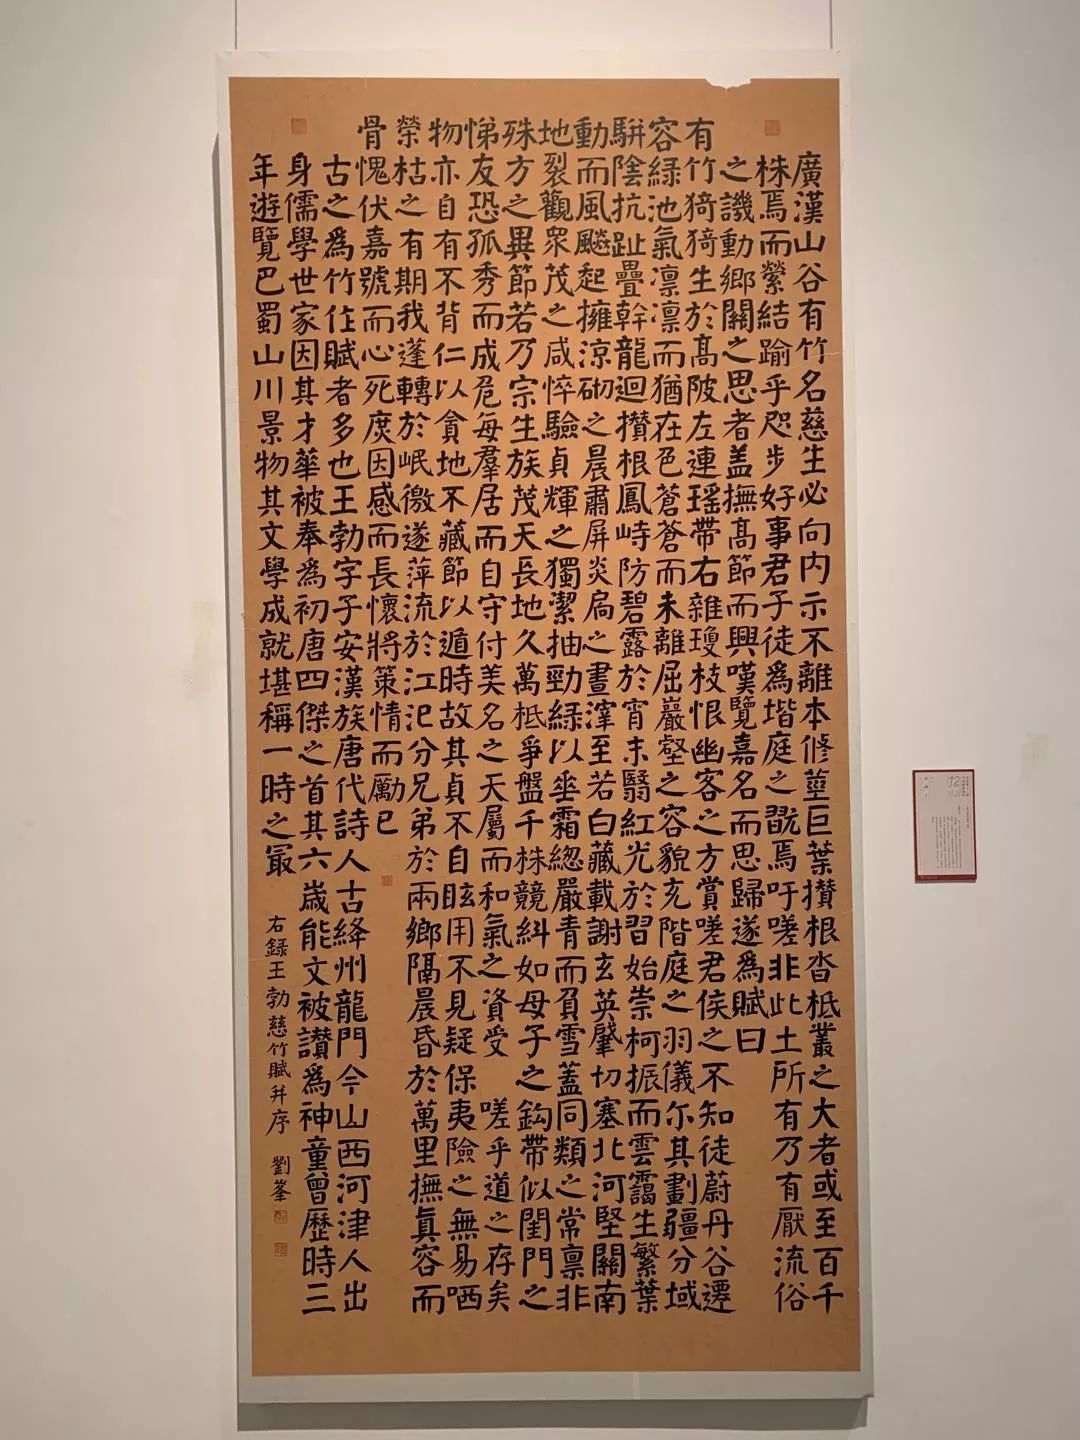 廣漢山谷有竹名慈生必向内示不離本修莖巨葉攅根沓柢叢之大者或至百千
株焉而縈結踰乎咫步好事君子徒爲堦庭之翫焉吁嗟非此土所有乃有厭流俗
之譏動鄉關之思者盖撫高節而興嘆覽嘉名而思歸遂爲賦曰
有竹猗猗生於高陂左連瑤帶右雜瓊枝恨幽客之方賞嗟君侯之不知徒蔚丹谷遷
容綠池氣凛凛而猶在色蒼蒼而未離屈巖壑之容貌充階庭之羽儀尔其劃疆分域
駢陰抗趾疊幹龍迴攅根鳳峙防碧露於宵末翳紅光於習始崇柯振而雲靄生繁葉
動而風飈起擁涼砌之晨肅屏炎扃之晝滓至若白藏載謝玄英肇切塞北河堅關南
地裂觀眾茂之咸悴驗貞輝之獨潔抽勁綠以垂霜緫嚴青而負雪盖同類之常禀非
殊方之異節若乃宗生族茂天長地久萬柢爭盤千株競糾如母子之鈎帶似閨門之
悌友恐孤秀而成危每羣居而自守付美名之天屬而和氣之資受 嗟乎道之存矣
物亦自有不背仁以貪地不藏節以遁時故其貞不自眩用不見疑保夷險之無易哂
榮枯之有期我蓬轉於岷徼遂萍流於江汜分兄弟於兩鄉隔晨昏於萬里撫眞容而
骨愧伏嘉號而心死庻因感而長懷將策情而勵已
古之爲竹作賦者多也王勃字子安漢族唐代詩人古絳州龍門今山西河津人出
身儒學世家因其才華被奉爲初唐四傑之首其六歲能文被讃爲神童曾歷時三
年遊覽巴蜀山川景物其文學成就堪稱一時之冣
右錄王勃慈竹賦并序 劉峯
12